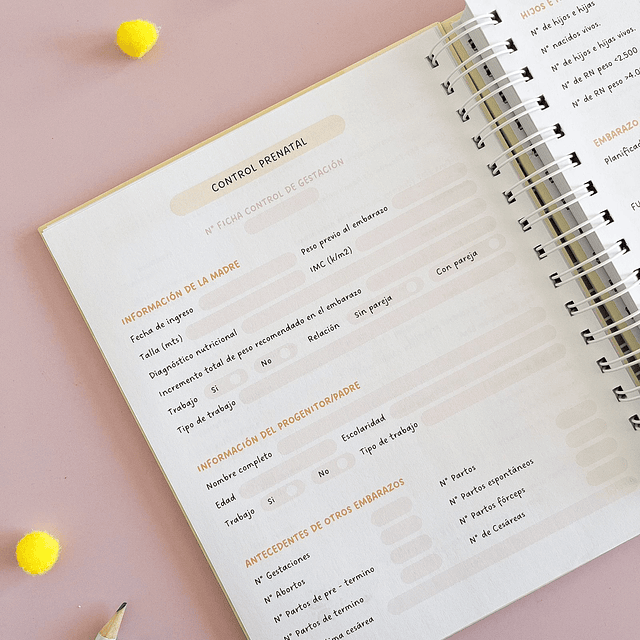 CONTROL PRENATAL
N° FICHA CONTROL DE GESTACIÓN
INFORMACIÓN DE LA MADRE
Fecha de ingreso Peso previo al embarazo
Talla (mts) IMC (k/m2)
Diagnóstico nutricional
Incremento total de peso recomendado en el embarazo
Trabajo Si No Relación Sin pareja Con pareja
Tipo de trabajo
INFORMACIÓN DEL PROGENITOR/PADRE
Nombre completo
Edad Escolaridad
Trabajo Si No Tipo de trabajo
ANTECEDENTES DE OTROS EMBARAZOS
N° Gestaciones N° Partos
N° Abortos N° Partos espontáneos
N° Partos de pre - termino N° Partos fórceps
N° Partos de termino N° de Cesáreas
cesárea
HIJOS E
N° de hijos e hijas
N° nacidos vivos.
N° de hijos e hijas vivos.
N° de RN peso <2.500
N° de RN peso >4.0
EMBARAZO